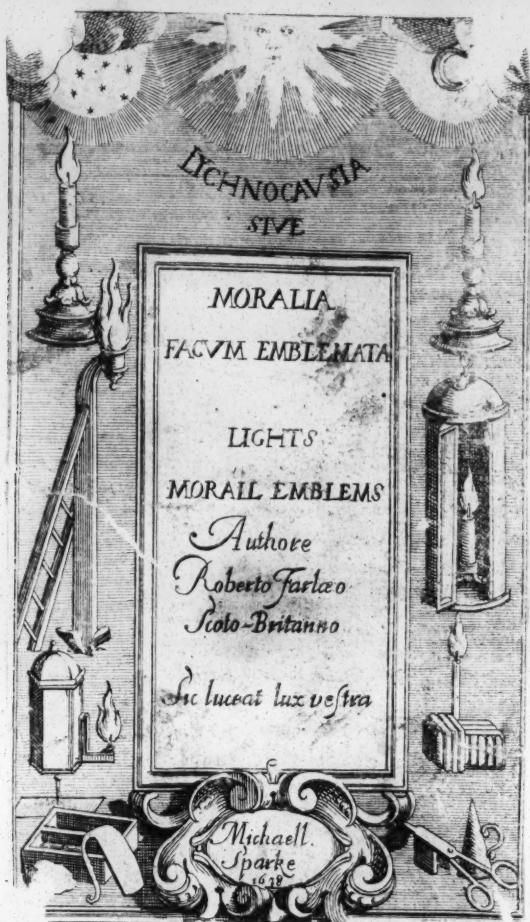 LYCHNOCAVSIA
SIVE
MORALIA
FACVM EMBLEMATA
LIGHTS
MORALL EMBLEMS
Authore
Roberto Farlæo
Scoto-Britanno
Sic luceat lux vestra
Michaell.
Sparke
1638